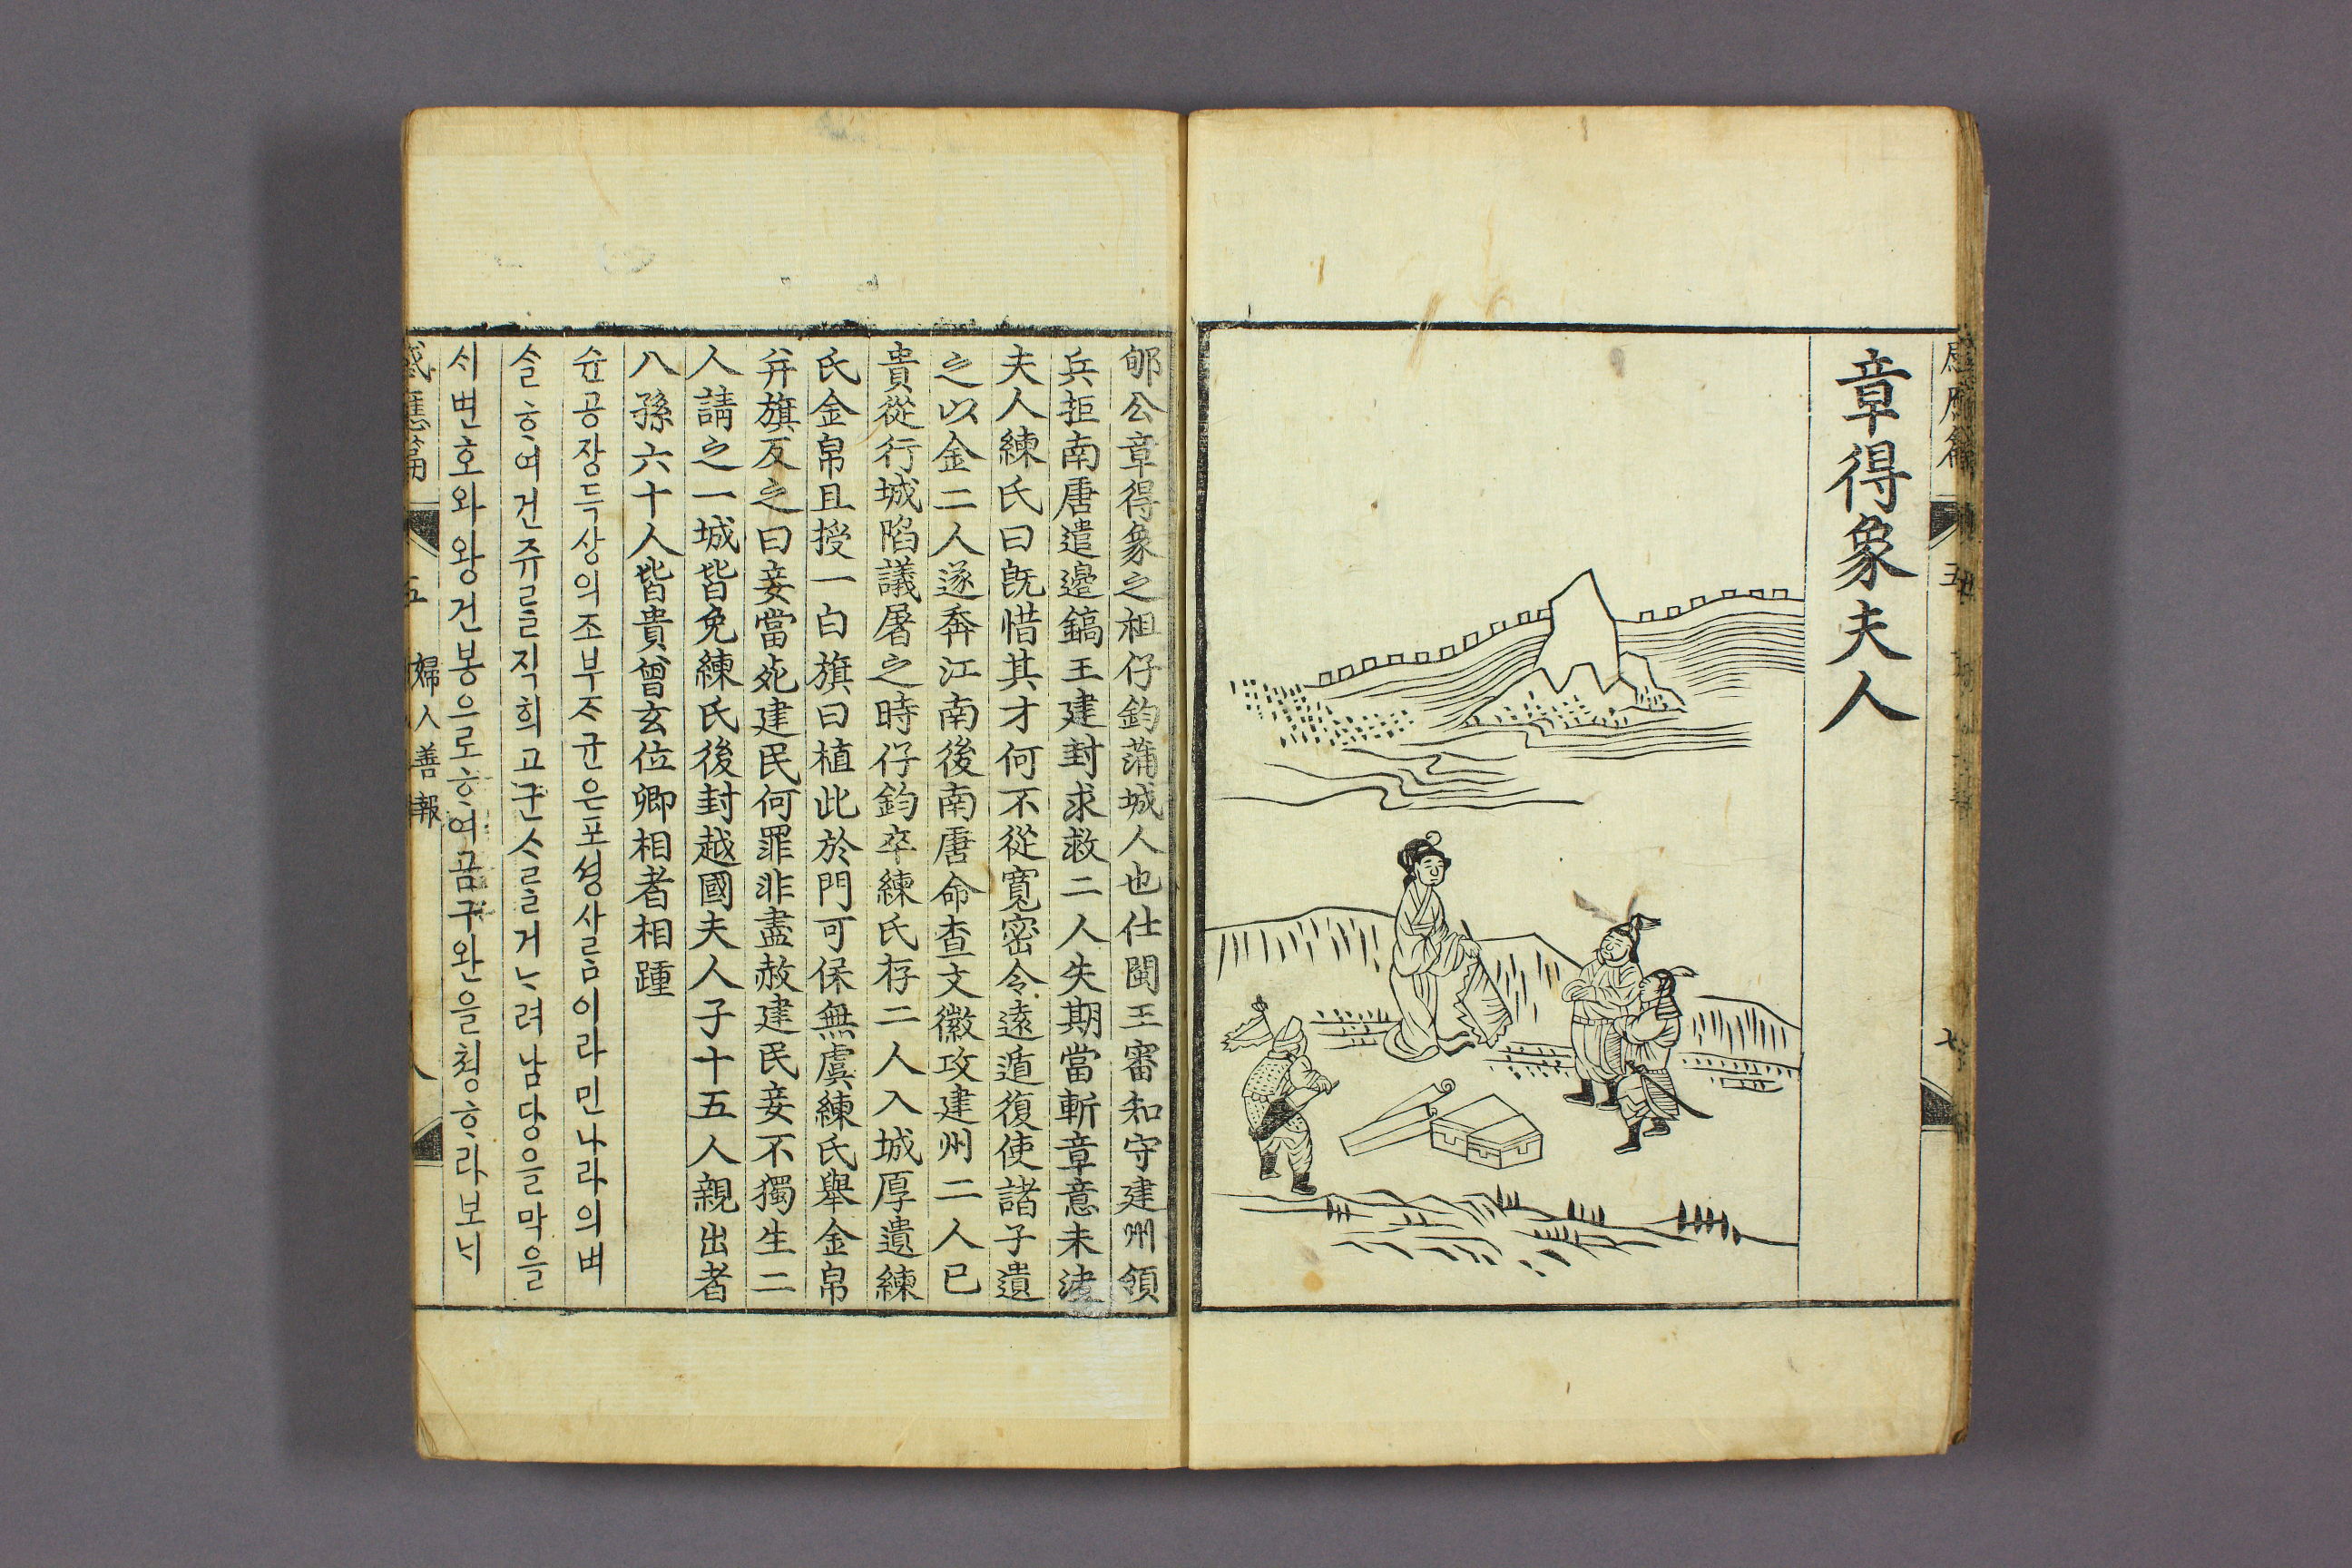 章得象夫人
郇公章得象之祖仔鈞蒲城人也仕閩王審知守建州領
兵拒南唐遣邉鎬王建封求救二人失期當斬章意未决
夫人練氏曰旣惜其才何不從寬密令遠遁復使諸子遺
之以金二人遂奔江南後南唐命查文徽攻建州二人已
貴從行城陷議屠之時仔鈞卒練氏存二人入城厚遺練
氏金帛且授一白旗曰植此於門可保無虞練氏舉金帛
幷旗反之曰妾當死建民何罪非盡赦建民妾不獨生二
人請之一城皆免練氏後封越國夫人子十五人親出者
八孫六十人皆貴曾玄位卿相者相踵
슌공쟝득샹의조부ᄌᆞ균은포셩사ᄅᆞᆷ이라민나라의벼
슬ᄒᆞ여건쥬ᄅᆞᆯ직희고군ᄉᆞᄅᆞᆯ거ᄂᆞ려남당을막을
ᄉᆡ변호와왕건봉으로ᄒᆞ여곰구완을쳥ᄒᆞ라보ᄂᆡ
感應篇
五
婦人善報
八